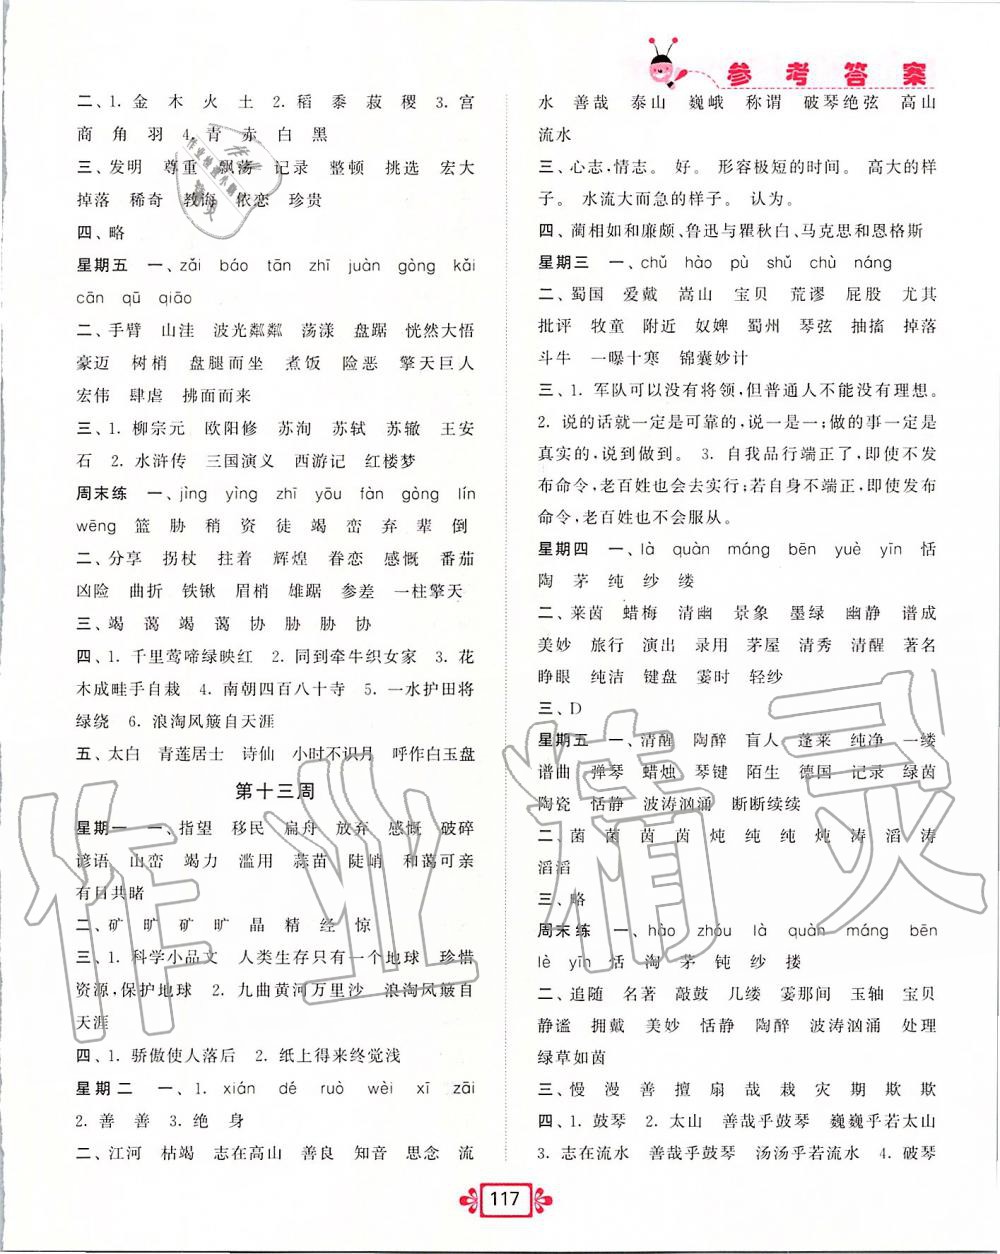 参考答案
二、1. 金 木 火 土 2. 稻 黍 菽 稷 3. 宫
商 角 羽 4. 青 赤 白 黑
三、发明 尊重 飘荡 记录 整顿 挑选 宏大
掉落 稀奇 教诲 依恋 珍贵
四、略
星期五 一、zǎi báo tān zhī juàn gòng kǎi
cān qū qiāo
二、手臂 山洼 波光粼粼 荡漾 盘踞 恍然大悟
豪迈 树梢 盘腿而坐 煮饭 险恶 擎天巨人
宏伟 肆虐 拂面而来
三、1. 柳宗元 欧阳修 苏洵 苏轼 苏辙 王安
石 2. 水浒传 三国演义 西游记 红楼梦
周末练 一、jìng yìng zhī yōu fàn gòng lín
wēng 篮 胁 稍 资 徒 竭 峦 弃 辈 倒
二、分享 拐杖 拄着 辉煌 眷恋 感慨 番茄
凶险 曲折 铁锹 眉梢 雄踞 参差 一柱擎天
三、竭 蔼 竭 蔼 协 胁 胁 协
四、1. 千里莺啼绿映红 2. 同到牵牛织女家 3. 花
木成畦手自栽 4. 南朝四百八十寺 5. 一水护田将
绿绕 6. 浪淘风簸自天涯
五、太白 青莲居士 诗仙 小时不识月 呼作白玉盘
第十三周
星期一 一、指望 移民 扁舟 放弃 感慨 破碎
谚语 山峦 竭力 滥用 蒜苗 陡峭 和蔼可亲
有目共睹
二、矿 旷 矿 旷 晶 精 经 惊
三、1. 科学小品文 人类生存只有一个地球 珍惜
资源,保护地球 2. 九曲黄河万里沙 浪淘风簸自
天涯
四、1. 骄傲使人落后 2. 纸上得来终觉浅
星期二 一、1. xián dé ruò wèi xī zāi
2. 善 善 3. 绝 身
二、江河 枯竭 志在高山 善良 知音 思念 流
水 善哉 泰山 巍峨 称谓 破琴绝弦 高山
流水
三、心志,情志。 好。 形容极短的时间。 高大的样
子。 水流大而急的样子。 认为。
四、蔺相如和廉颇、鲁迅与瞿秋白、马克思和恩格斯
星期三 一、chǔ hào pù shǔ chù náng
二、蜀国 爱戴 嵩山 宝贝 荒谬 屁股 尤其
批评 牧童 附近 奴婢 蜀州 琴弦 抽搐 掉落
斗牛 一曝十寒 锦囊妙计
三、1. 军队可以没有将领,但普通人不能没有理想。
2. 说的话就一定是可靠的,说一是一;做的事一定是
真实的,说到做到。 3. 自我品行端正了,即使不发
布命令,老百姓也会去实行;若自身不端正,即使发布
命令,老百姓也不会服从。
星期四 一、là quàn máng bēn yuè yīn 恬
陶 茅 纯 纱 缕
二、莱茵 蜡梅 清幽 景象 墨绿 幽静 谱成
美妙 旅行 演出 录用 茅屋 清秀 清醒 著名
睁眼 纯洁 键盘 霎时 轻纱
三、D
星期五 一、清醒 陶醉 盲人 蓬莱 纯净 一缕
谱曲 弹琴 蜡烛 琴键 陌生 德国 记录 绿茵
陶瓷 恬静 波涛汹涌 断断续续
二、菌 茵 茵 菌 炖 纯 纯 炖 涛 滔 涛
滔滔
三、略
周末练 一、hào zhóu là quàn máng bēn
lè yīn 恬 淘 茅 钝 纱 搂
二、追随 名著 敲鼓 几缕 霎那间 玉轴 宝贝
静谧 拥戴 美妙 恬静 陶醉 波涛汹涌 处理
绿草如茵
三、慢 漫 善 擅 扇 哉 栽 灾 期 欺 欺
四、1. 鼓琴 2. 太山 善哉乎鼓琴 巍巍乎若太山
3. 志在流水 善哉乎鼓琴 汤汤乎若流水 4. 破琴
117
作业精灵